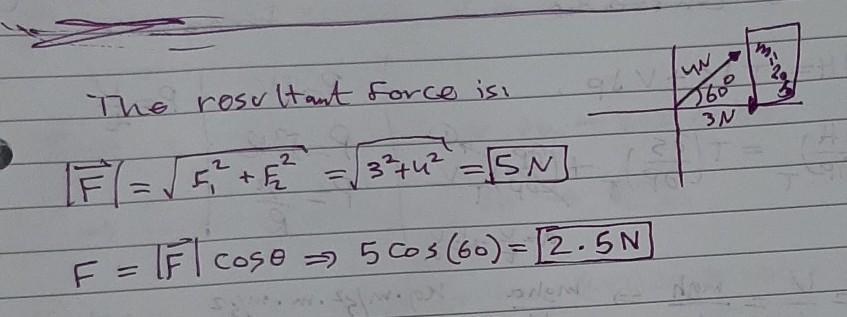 The resultant force is:
|F⃗| = √(F₁² + F₂²) = √(3² + 4²) = 5 N
F = |F⃗| cosθ ⇒ 5 cos(60) = 2.5 N
4N
60°
3N